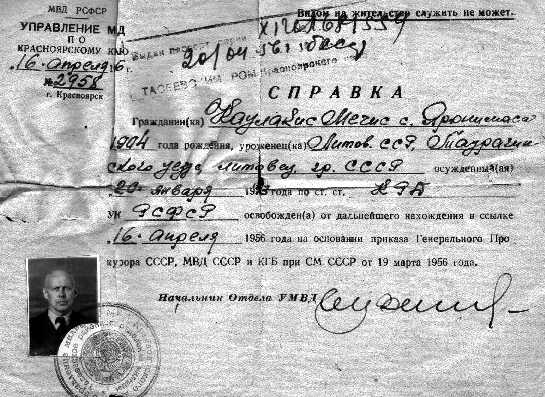 МВД РСФСР
Видом на жительство служить не может.
УПРАВЛЕНИЕ МВД
ПО
КРАСНОЯРСКОМУ КРАЮ
16 апреля
№ 2958
г. Красноярск
Выдан паспорт серии
20/04 56
ТАСЕЕВСКИМ РОМ Красноярского
СПРАВКА
Гражданин(ка) Каулакис Мечис с. Иронимаса
1904 года рождения, уроженец(ка) Литов. ССР, Таурагин
ского уезда литовец, гр. СССР осужденный(ая)
20 января года по ст. ст. КРД
УК РСФСР освобожден(а) от дальнейшего нахождения в ссылке
16 апреля 1956 года на основании приказа Генерального Про
курора СССР, МВД СССР и КГБ при СМ СССР от 19 марта 1956 года.
Начальник Отдела УМВД